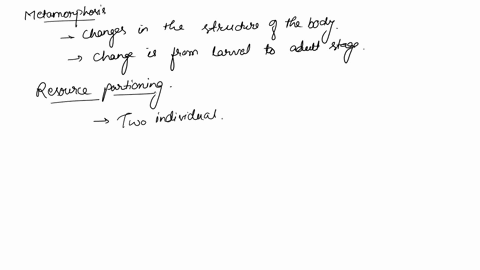 Metamorphosis
→ Changes in the structure of the body.
→ Change is from larval to adult stage.
Resource partioning.
→ Two individual.